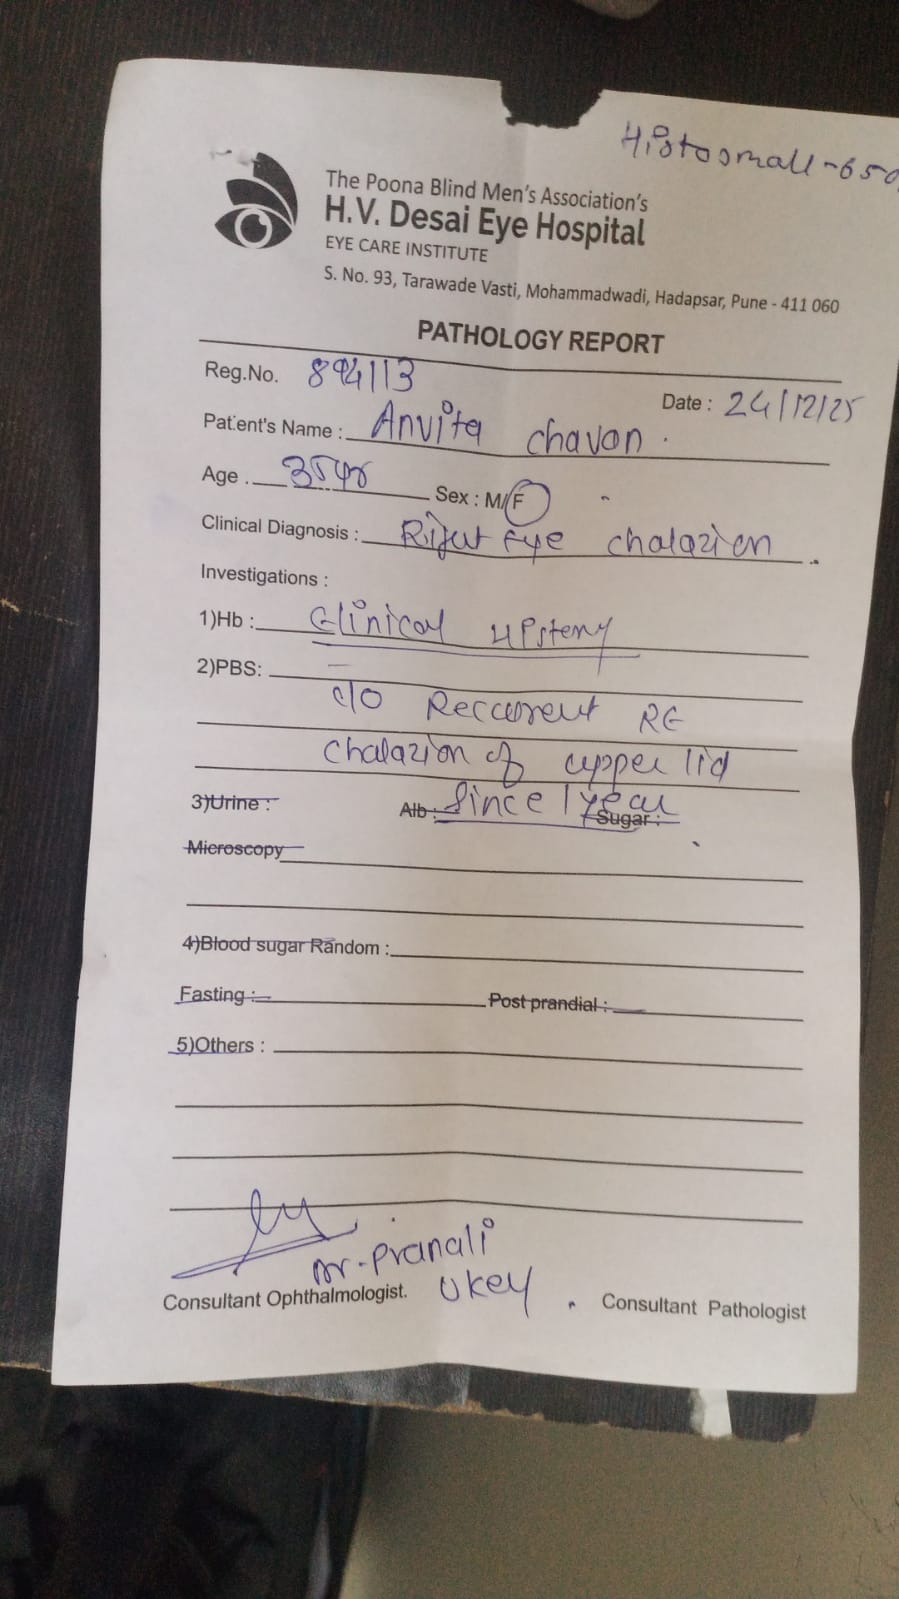 Histosmall-650
The Poona Blind Men's Association's
H.V. Desai Eye Hospital
EYE CARE INSTITUTE
S. No. 93, Tarawade Vasti, Mohammadwadi, Hadapsar, Pune - 411 060
PATHOLOGY REPORT
Reg.No. 894113
Date : 24/12/25
Patient's Name : Anvita chavan.
Age . 35yr Sex : M/F
Clinical Diagnosis : Right Eye chalazion
Investigations :
1)Hb : Clinical History
2)PBS:
c/o Recurrent RE
chalazion of upper lid
3)Urine : Alb : Since 1 year Sugar :
Microscopy
4)Blood sugar Random :
Fasting : Post prandial :
5)Others :
Dr. Pranali
Ukey
Consultant Ophthalmologist. Consultant Pathologist